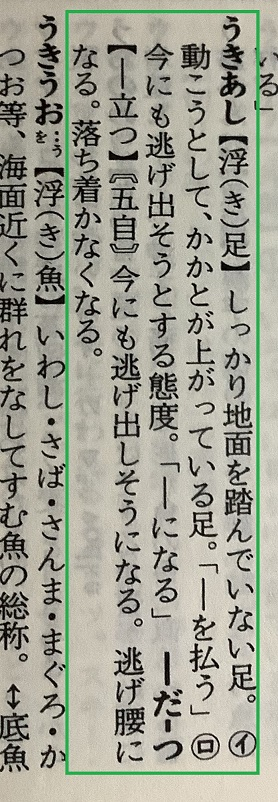 いる」
うきあし【浮(き)足】しっかり地面を踏んでいない足。㋑
動こうとして、かかとが上がっている足。「―を払う」㋺
今にも逃げ出そうとする態度。「―になる」―だ-つ
【―立つ】〘五自〙今にも逃げ出しそうになる。逃げ腰に
なる。落ち着かなくなる。
うきうお…う【浮(き)魚】いわし・さば・さんま・まぐろ・か
つお等、海面近くに群れをなしてすむ魚の総称。↕底魚